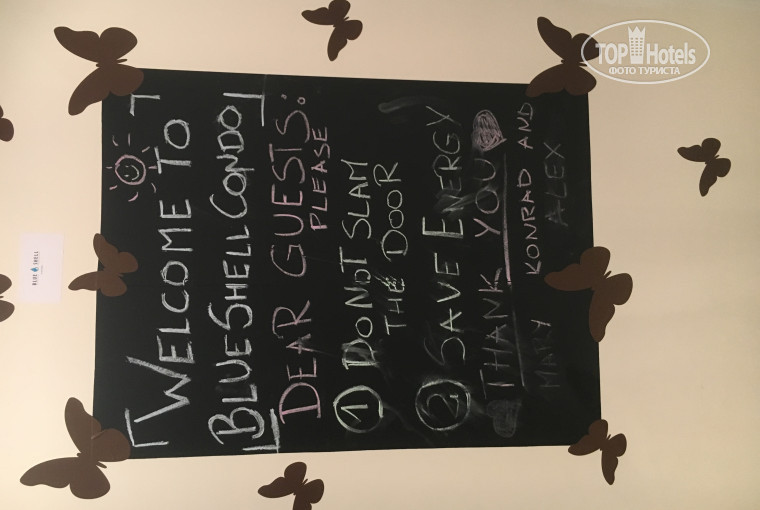 WELCOME TO
BLUESHELLCONDO
DEAR GUESTS:
PLEASE
① DO NOT SLAM
THE DOOR
② SAVE ENERGY
THANK YOU
KONRAD AND
MARY ALEX
BLUE SHELL
TOP Hotels
ФОТО ТУРИСТА